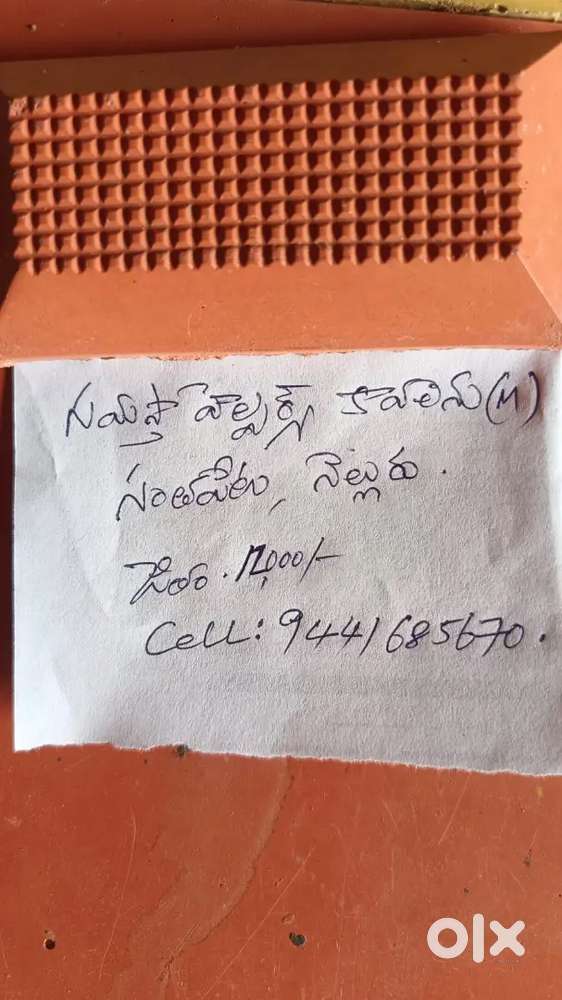 హెల్పర్స్ కావలెను (M)
సంతపేట, నెల్లూరు.
జీతం. 12,000/-
Cell: 9441685670.
olx